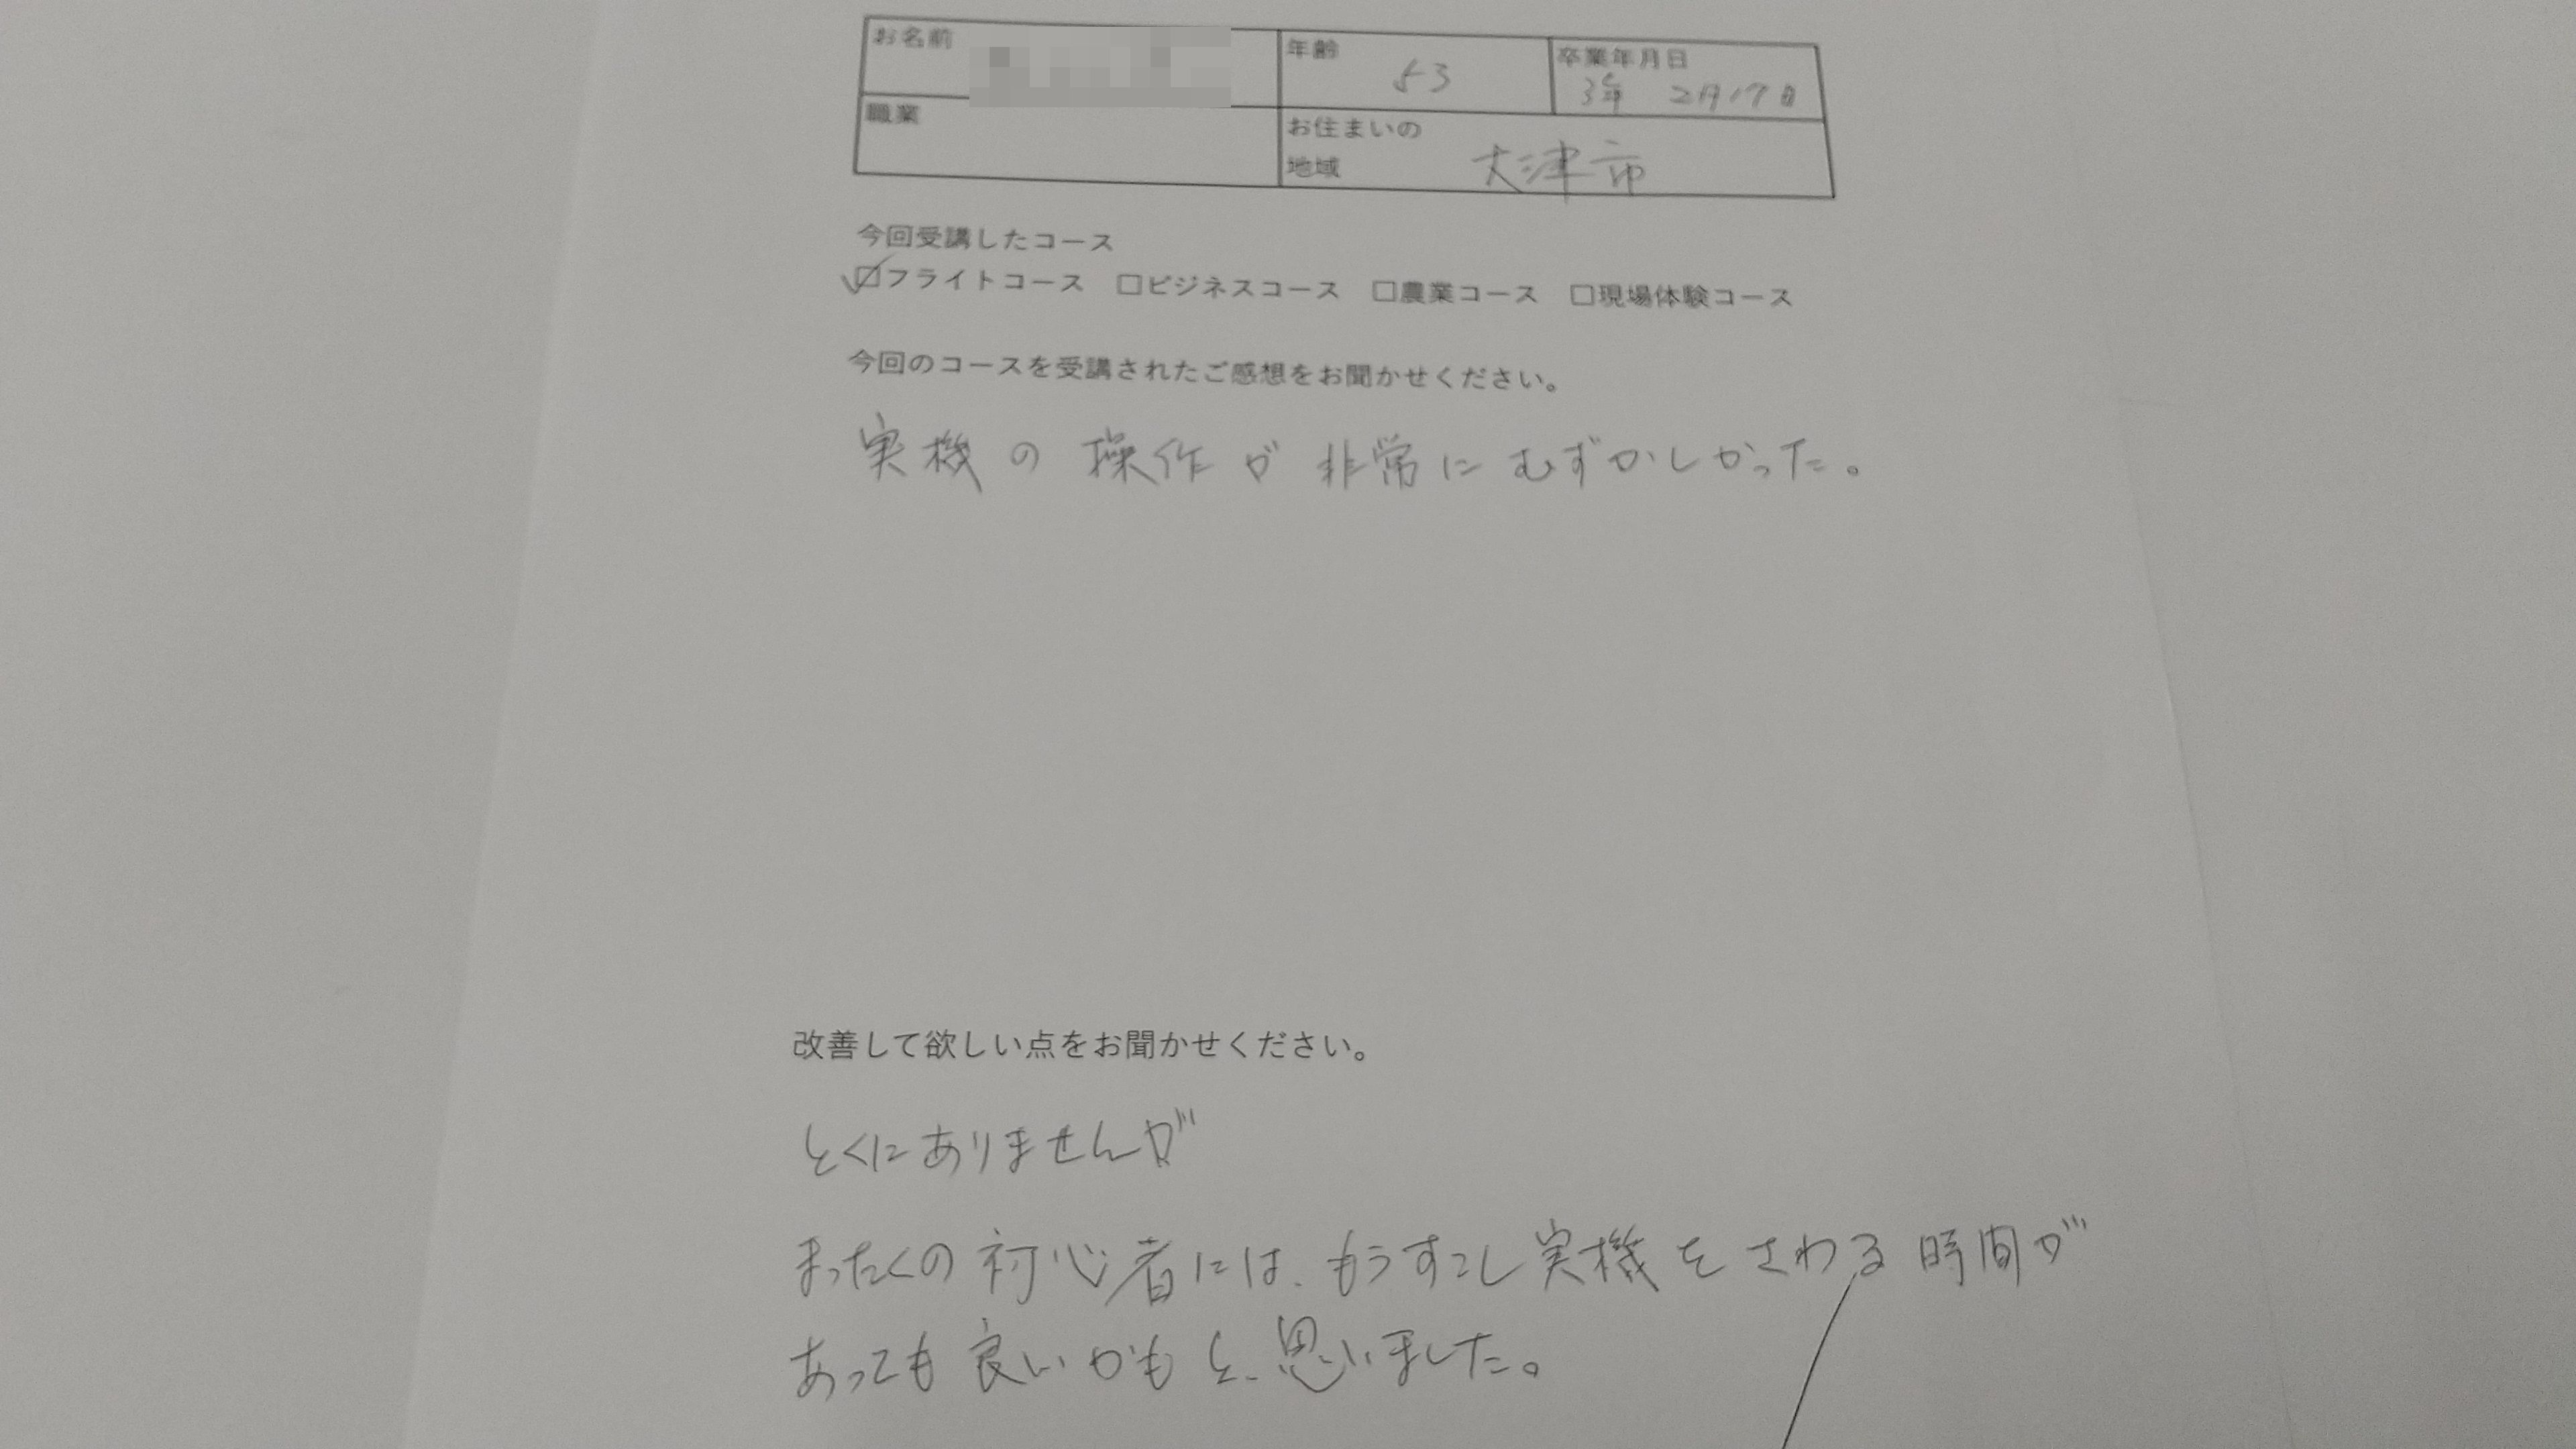 お名前
年齢 53
卒業年月日
3年 2月17日
職業
お住まいの
地域 大津市
今回受講したコース
☑フライトコース □ビジネスコース □農業コース □現場体験コース
今回のコースを受講されたご感想をお聞かせください。
実機の操作が非常にむずかしかった。
改善して欲しい点をお聞かせください。
とくにありませんが
まったくの初心者には、もうすこし実機をさわる時間が
あっても良いかもと、思いました。